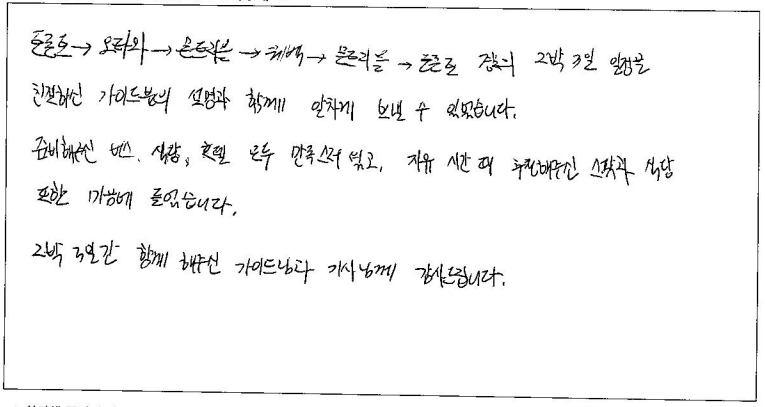 토론토 → 오타와 → 몬트리올 → 퀘벡 → 몬트리올 → 토론토 경로의 2박 3일 일정을
친절하신 가이드분의 설명과 함께 알차게 보낼 수 있었습니다.
준비해주신 버스, 식당, 호텔 모두 만족스러웠고, 자유 시간 때 추천해주신 스팟과 식당
또한 마음에 들었습니다.
2박 3일간 함께 해주신 가이드님과 기사님께 감사드립니다.